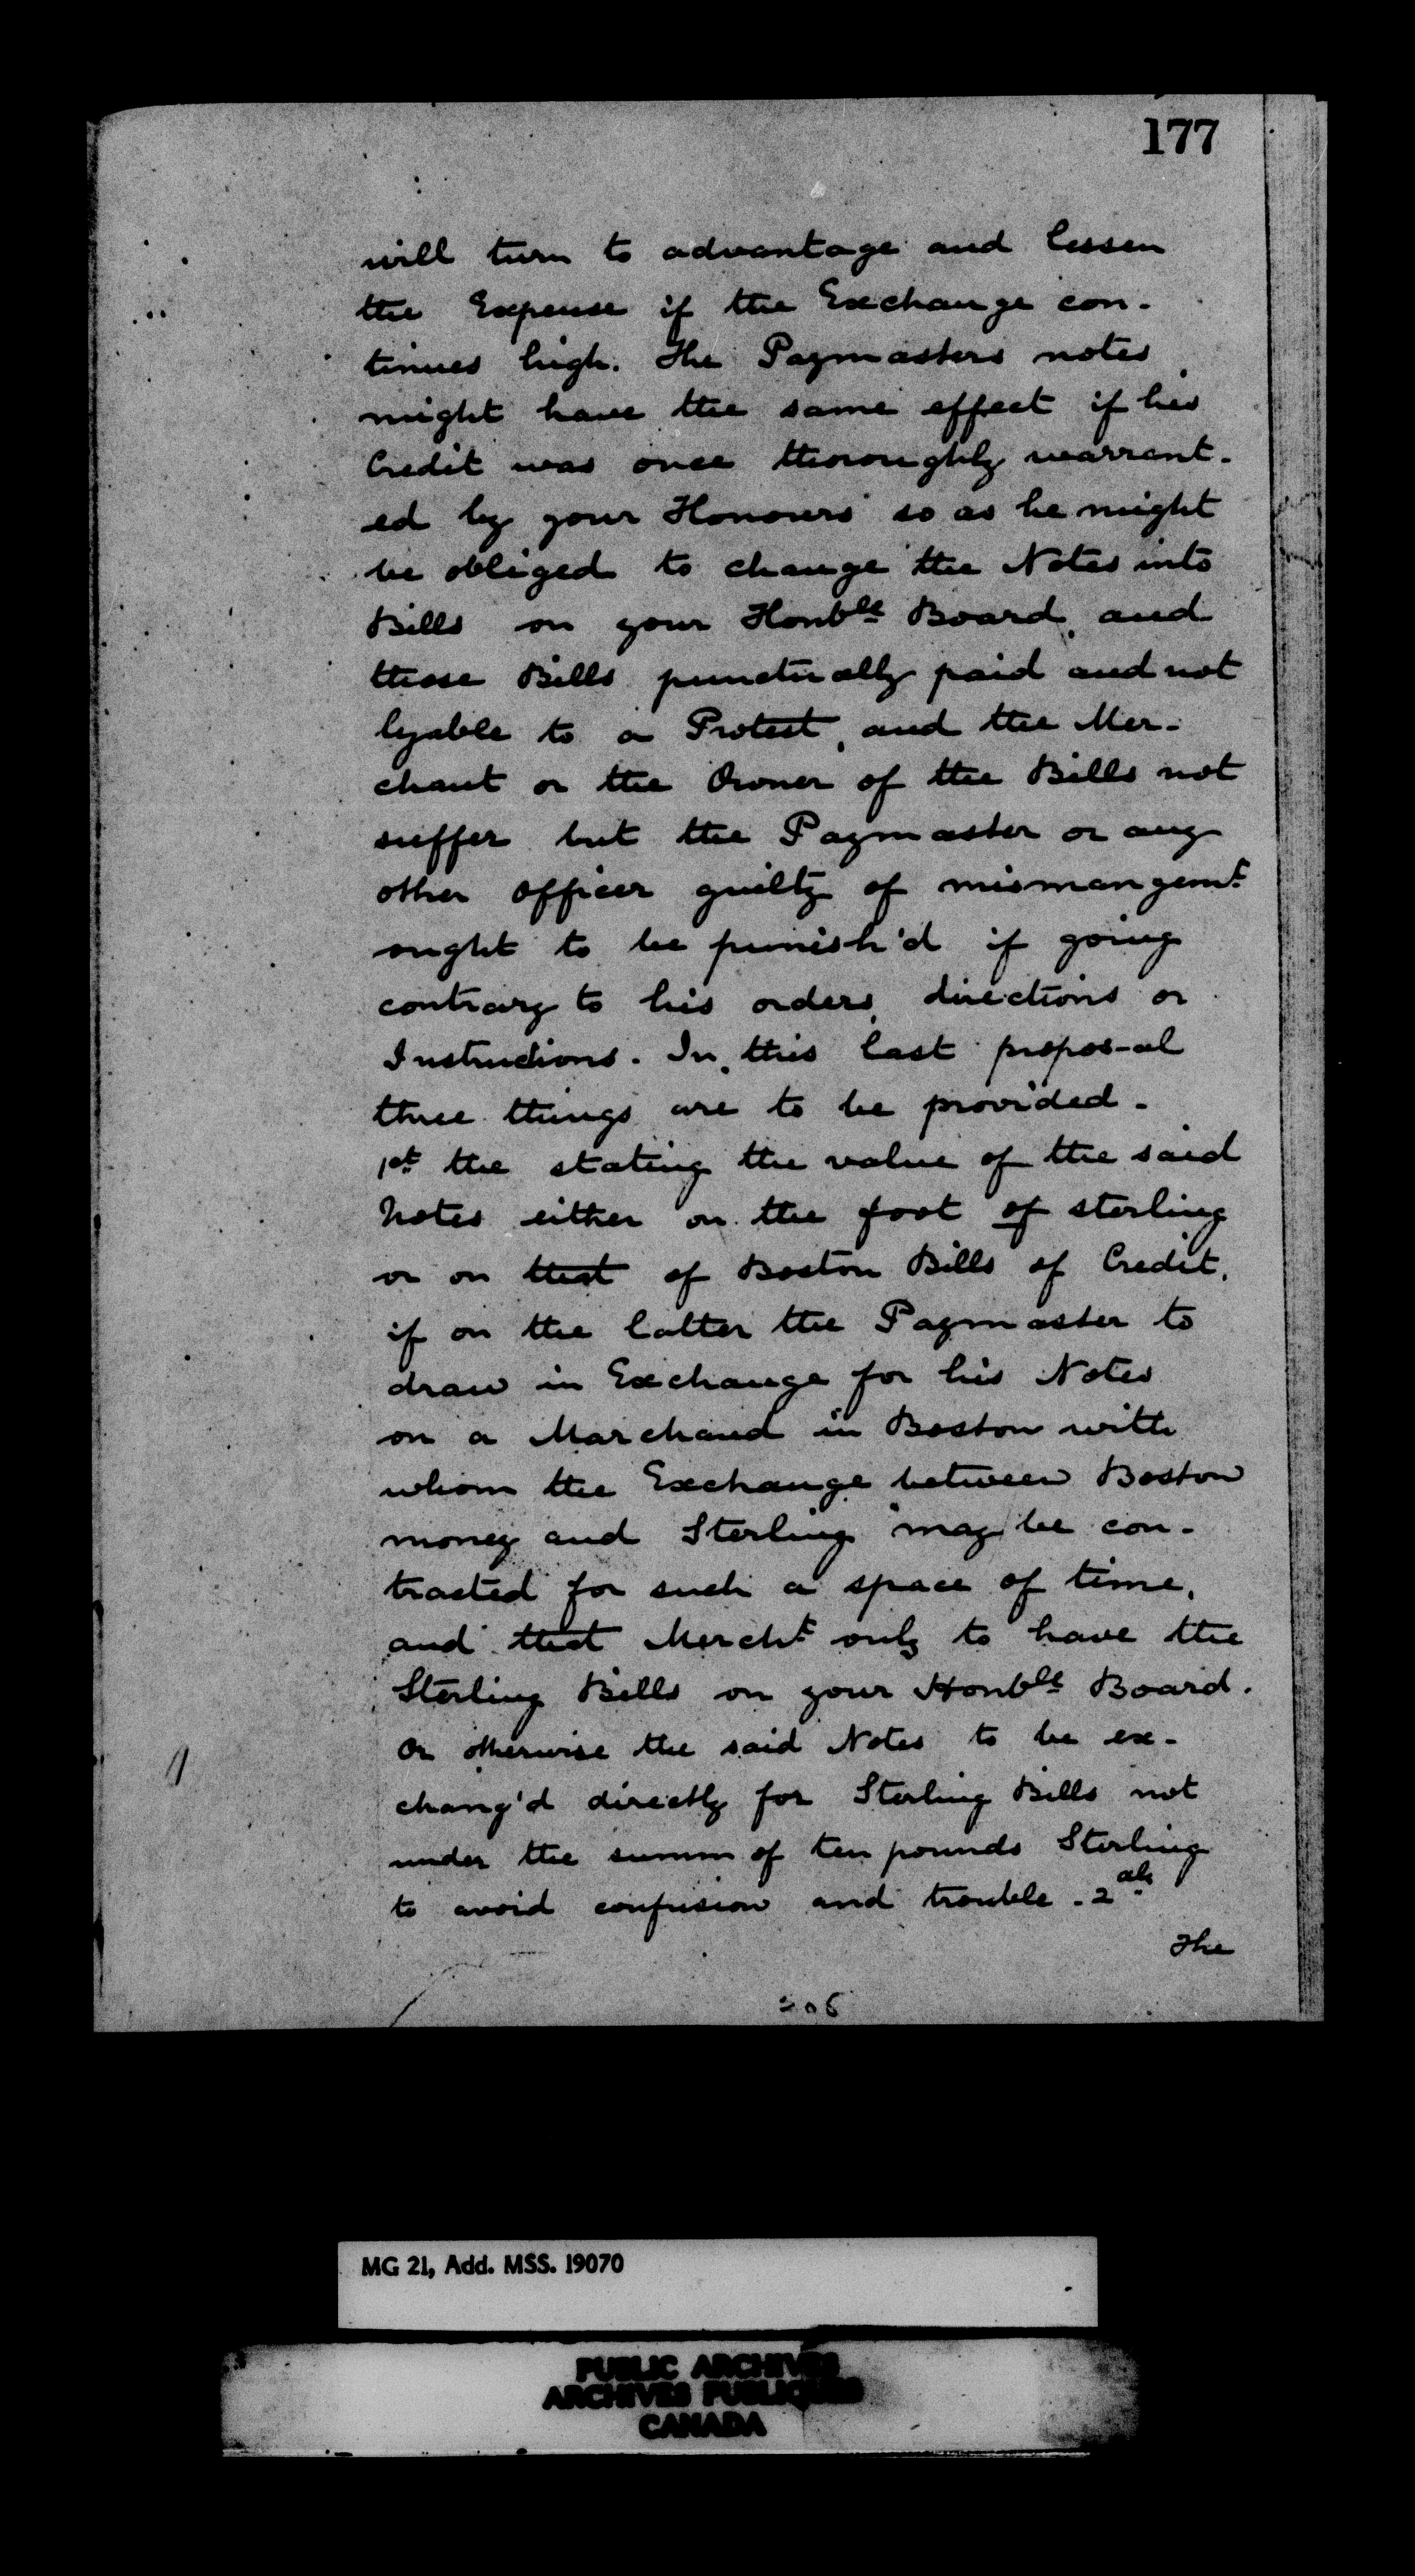 177
will turn to advantage and lessen
the Expense if the Exchange con-
tinues high. The Paymasters notes
might have the same effect if his
Credit was once thoroughly warrant-
ed by your Honours so as he might
be obliged to change the Notes into
Bills on your Honble Board, and
those Bills punctually paid and not
lyable to a Protest, and the Mer-
chant or the Owner of the Bills not
suffer but the Paymaster or any
other officer guilty of mismangemt
ought to be punish'd if going
contrary to his orders, directions or
Instructions. In this last propos-al
three things are to be provided -
1st the stating the value of the said
Notes either on the foot of sterling
or on that of Boston Bills of Credit,
if on the latter the Paymaster to
draw in Exchange for his Notes
on a Marchand in Boston with
whom the Exchange between Boston
money and Sterling may be con-
tracted for such a space of time,
and that Mercht only to have the
Sterling Bills on your Honble Board.
Or otherwise the said Notes to be ex-
chang'd directly for Sterling Bills not
under the summ of ten pounds Sterling
to avoid confusion and trouble - 2dly
The
MG 21, Add. MSS. 19070
PUBLIC ARCHIVES
ARCHIVES PUBLIQUES
CANADA